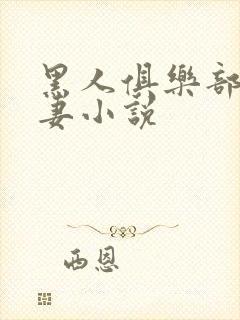 黑人俱樂部
妻小說
西恩